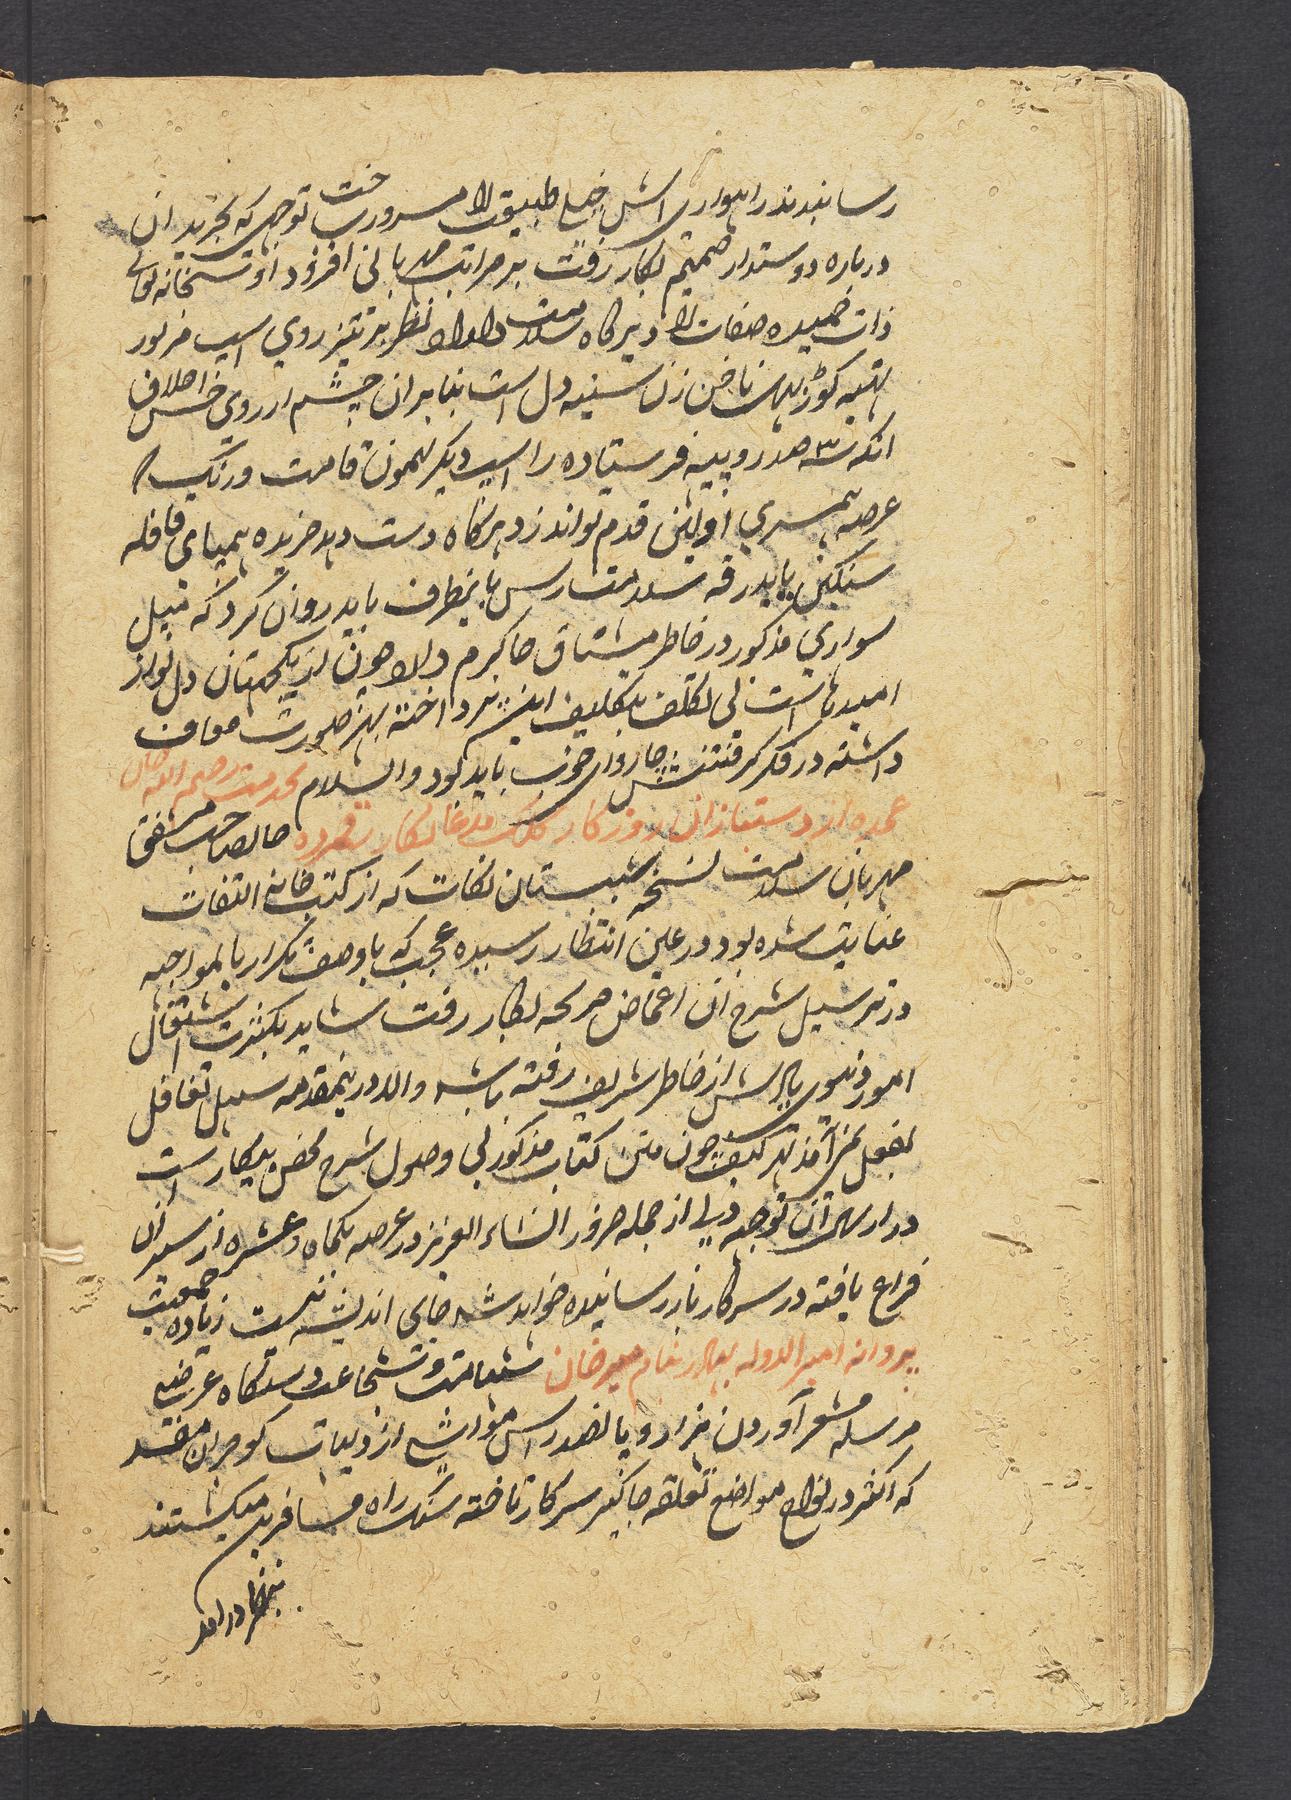 رسانیدند راهواری اسپ خیلی طبیعت را مسرور ساخت توجهی که بخرید ان
درباره دوستدار صمیم بکار رفت بر مراتب مهربانی افزود
ذات حمیده صفات را دیرگاه سلامت داراد نظر بر تیز روی اسپ مزبور
ناخن زن سینه دل است بنابران چشم از روی حسن اخلاق
انکه سه صد روپیه فرستاده را اسپ دیگر همون قامت و رنگ که
عرصه همسری اولین قدم تواند زد هرگاه دست دهد خریده بهمپای قافله
سنگین یا بدرقه سلامت رس باینطرف باید روان کرد که میل
سواری مذکور در خاطر مشتاق جاگیرم و چون از یکجهتان دل نواز
امیدهاست بی تکلف بتکلیف این پرداخته بهر صورت معاف
داشته در فکر گرفتنش چاروای خوب باید بود والسلام بخدمت رحیم الله خان
عمده از دستیاران روزگار کلک مدعا نگار رقمزده خانصاحب مشفق
مهربان سلامت نسخه شبستان نکات که از کتب خانه التفات
عنایت شده بود در عین انتظار رسیده عجب که باوصف تکرار بالمواجهه
در ترسیل شرح ان اغماض صریحه بکار رفت شاید بکثرت اشتغال
امور دنیوی یادش از خاطر شریف رفته باشد والا درینمقدمه سبیل تغافل
بفعل نمی آمد بهر کیف چون متن کتاب مذکور بی وصول شرح محض بیکار است
در ارسال آن توجه دلی از جمله ضرور انشاء العزیز در عرصه یکماه و عشره از سیر ان
فراغ یافته در سرکار باز رسانیده خواهد شد جای اندیشه نیست زیاده جمعیت
پروانه امیر الدوله بهادر بنام میر خان شهامت و شجاعت دستگاه عرضی
مرسله مشعر آوردن هزار و پانصد راس مواشی از دیهات گوجران مفسد
که اکثر در نواح مواضع تعلقه جاگیر سرکار تاخته سنگ راه مسافرین میگشتند
بنظر درامد